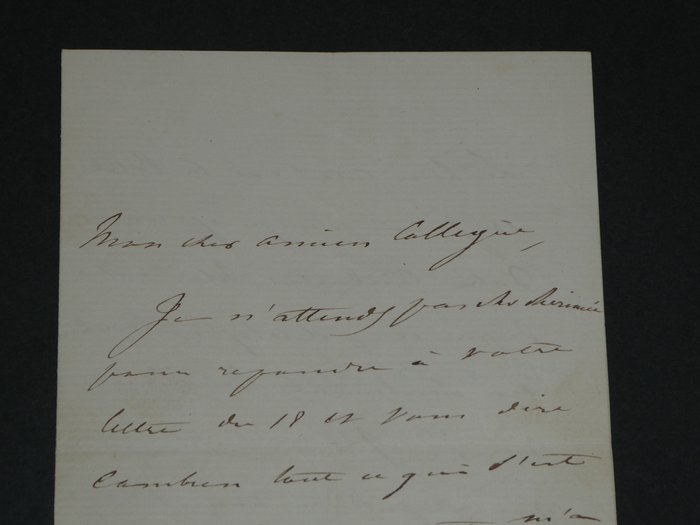 Mon cher ancien Collegue,
Je n'attends pas
pour repondre à votre
lettre du 18 et vous dire
Combien tout ce qui s'est
m'a